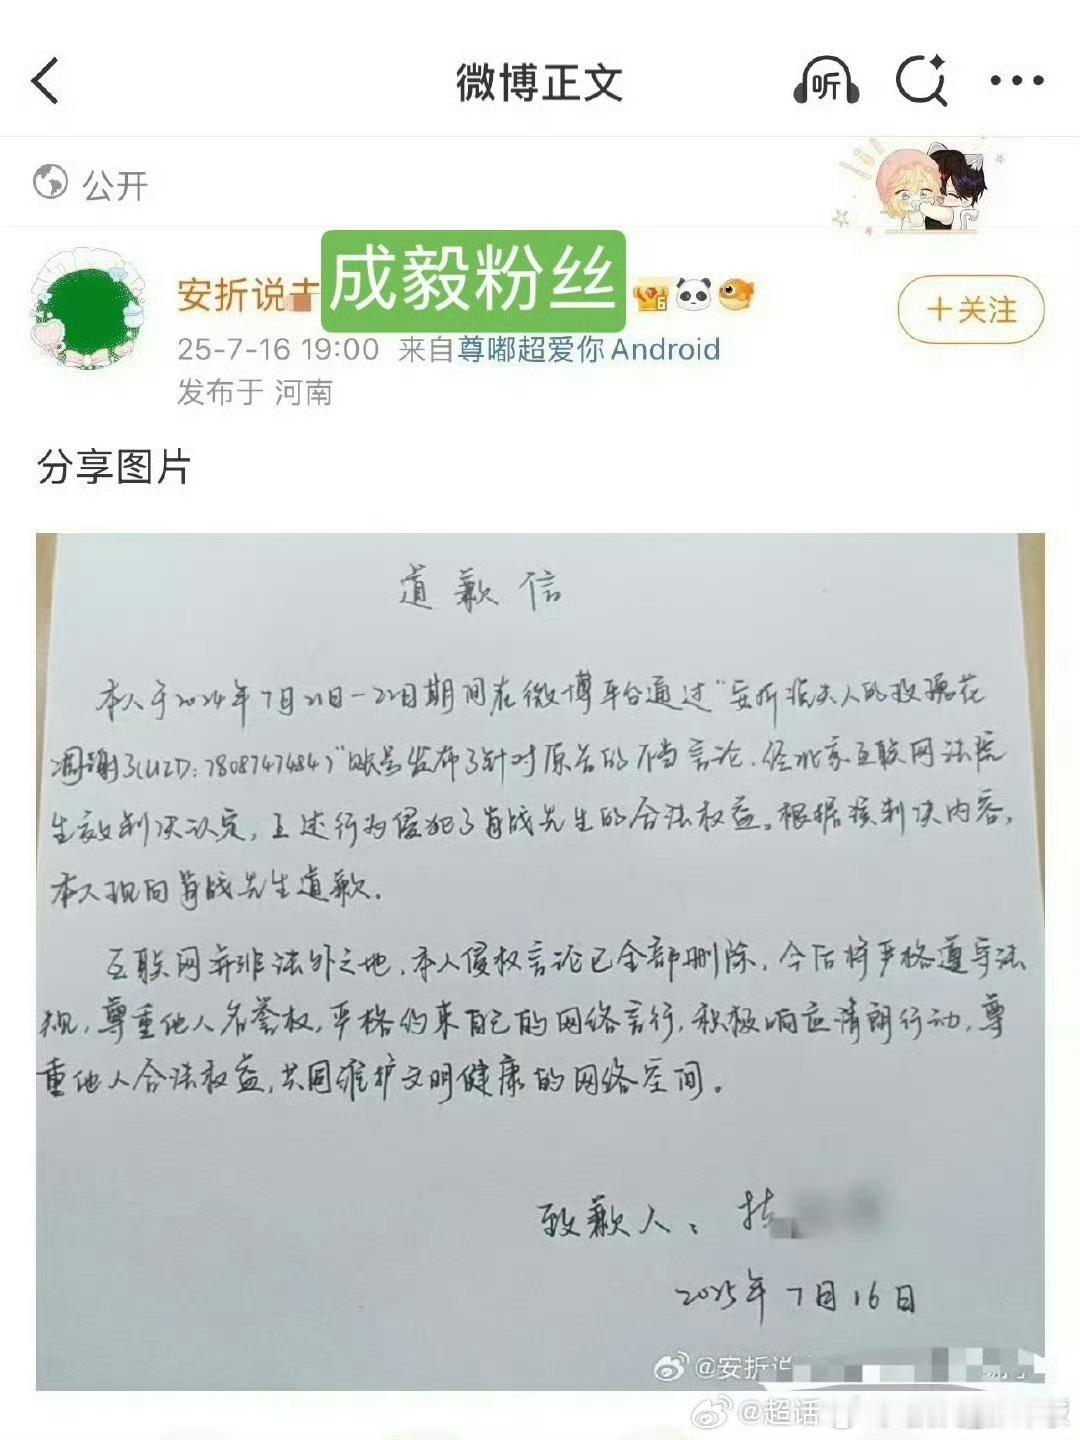 微博正文
听
公开
安折说
成毅粉丝
6
+关注
25-7-16 19:00 来自尊嘟超爱你Android
发布于 河南
分享图片
道歉信
本人于2024年7月21日-22日期间在微博平台通过“安折说夫人的玫瑰花
凋谢了(UID:7808747484)”账号发布了针对原告的不当言论,经北京互联网法院
生效判决认定,上述行为侵犯了肖战先生的合法权益。根据该判决内容,
本人现向肖战先生道歉。
互联网并非法外之地,本人侵权言论已全部删除,今后将严格遵守法
规,尊重他人名誉权,严格约束自己的网络言行,积极响应清朗行动,尊
重他人合法权益,共同维护文明健康的网络空间。
致歉人:
2025年7月16日
@安折说
@超话